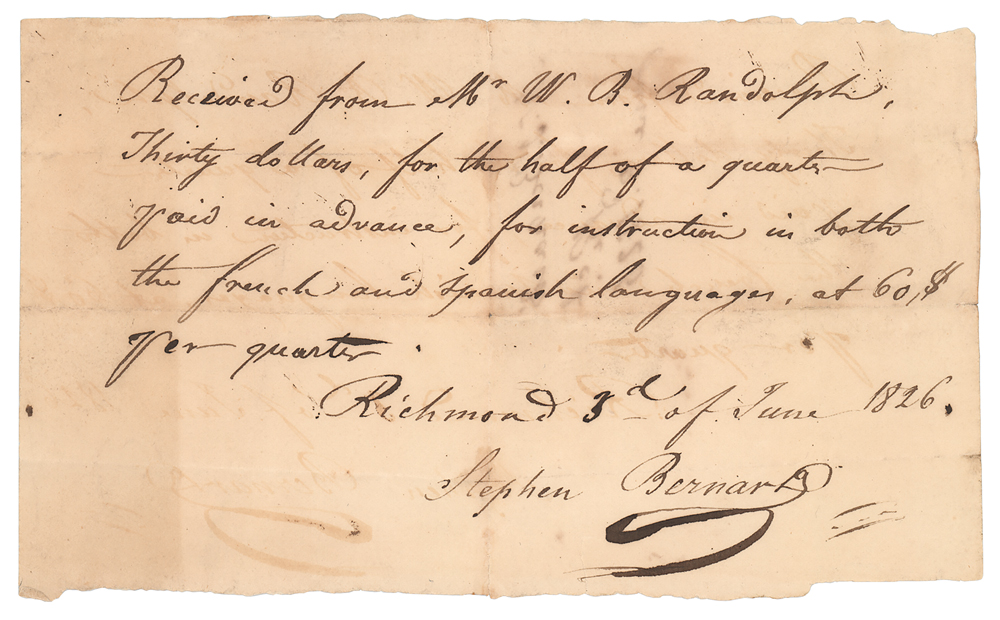 Received from Mr W. B. Randolph,
Thirty dollars, for the half of a quarter
paid in advance, for instruction in both
the french and spanish languages, at 60,$
per quarter.
Richmond 3d of June 1826.
Stephen Bernard